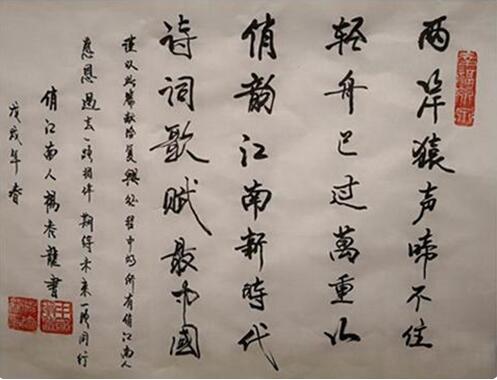 两岸猿声啼不住
轻舟已过萬重山
俏韵江南新時代
诗词歌赋最中國
谨以此篇献给复興征程中的所有俏江南人
感恩過去一路相伴 期待未来一路同行
俏江南人 杨秀龍書
戊戌年春